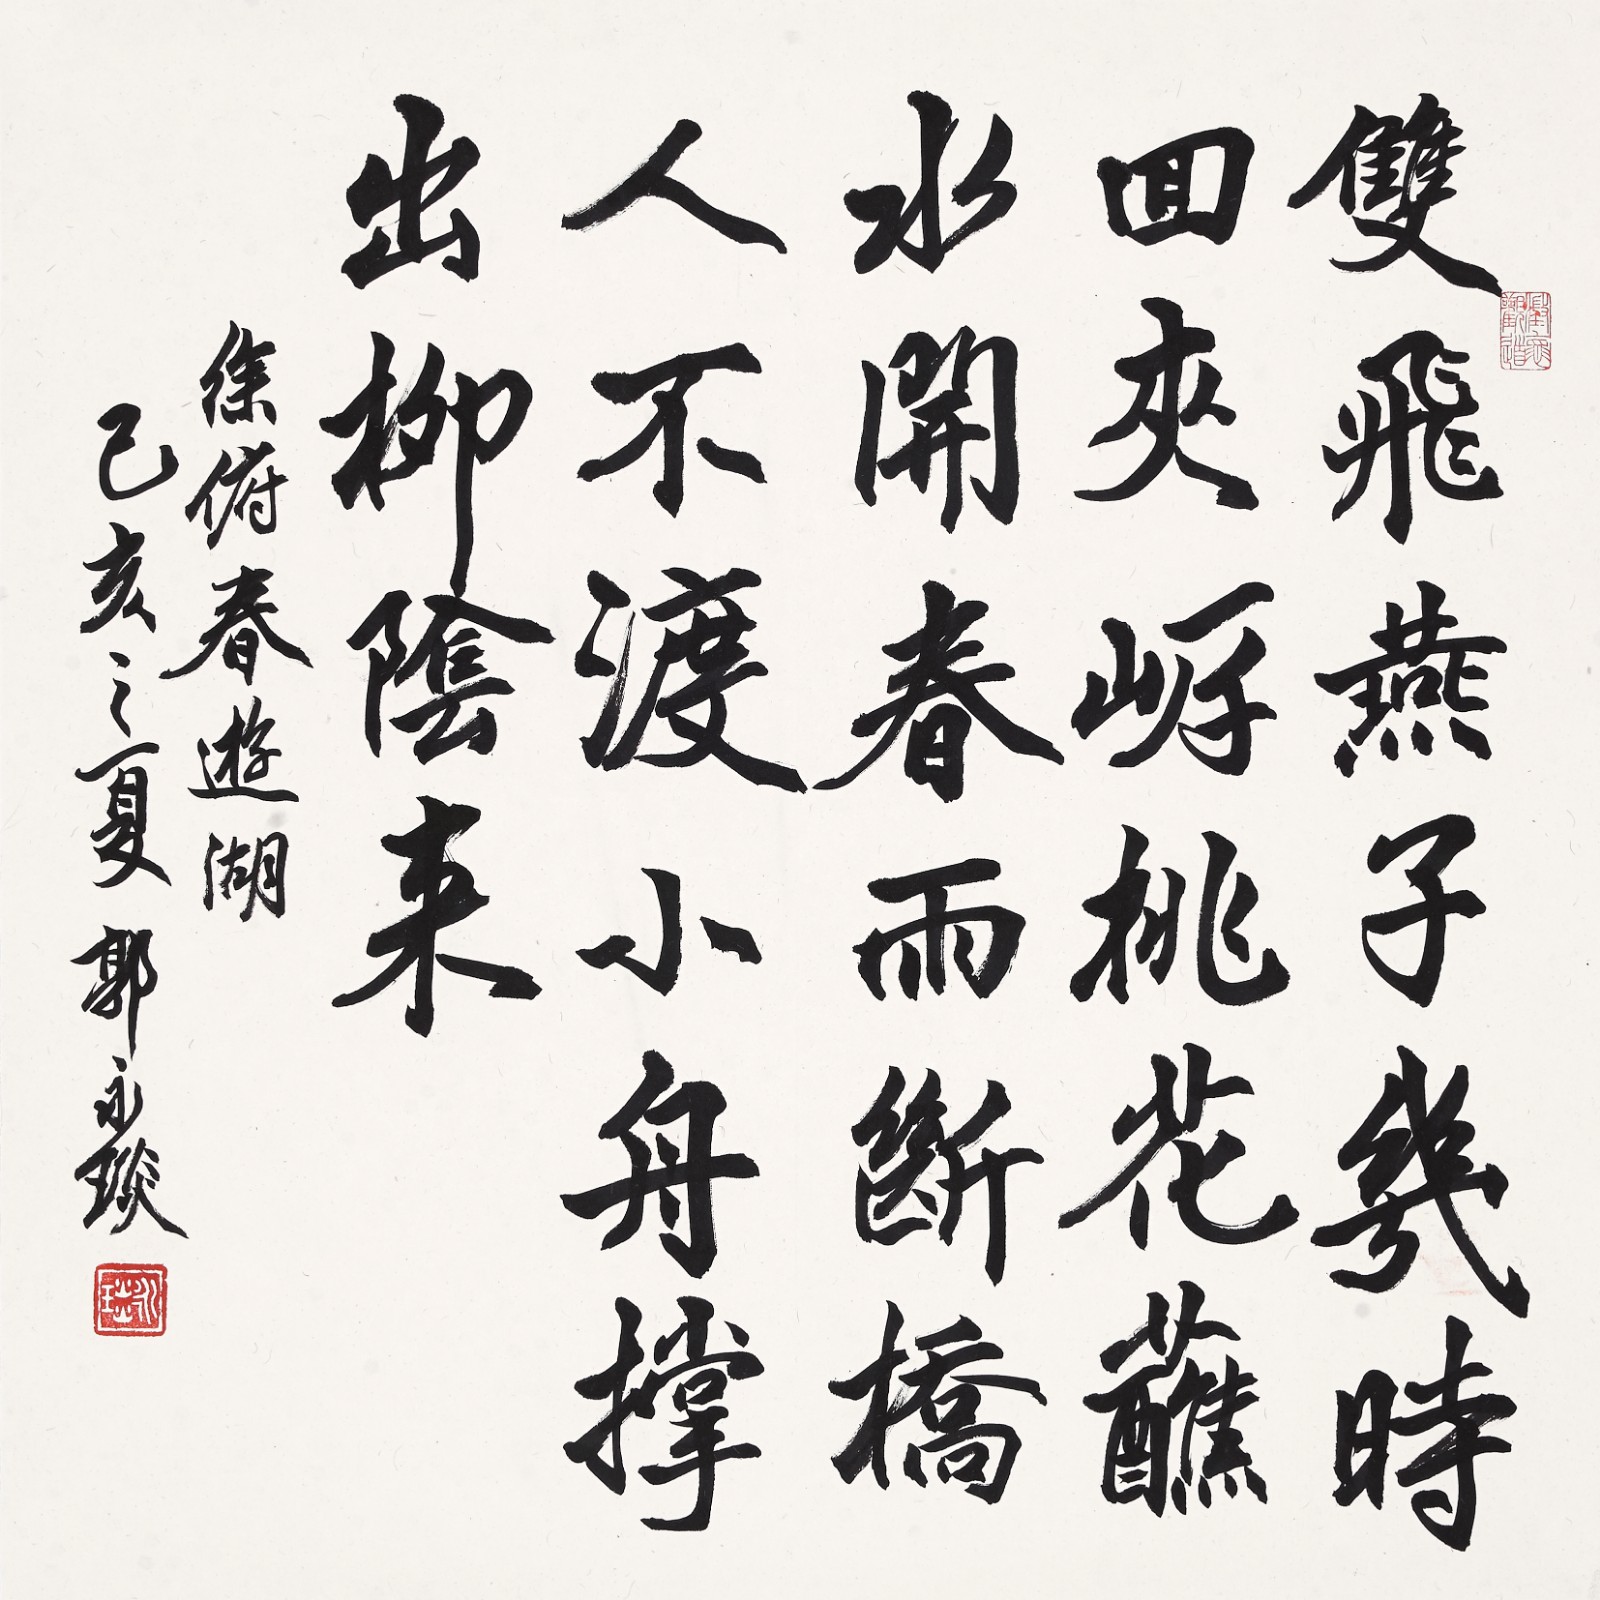 雙飛燕子幾時
回夾岸桃花蘸
水開春雨斷橋
人不渡小舟撐
出柳陰來
徐俯春遊湖
己亥之夏郭永琰